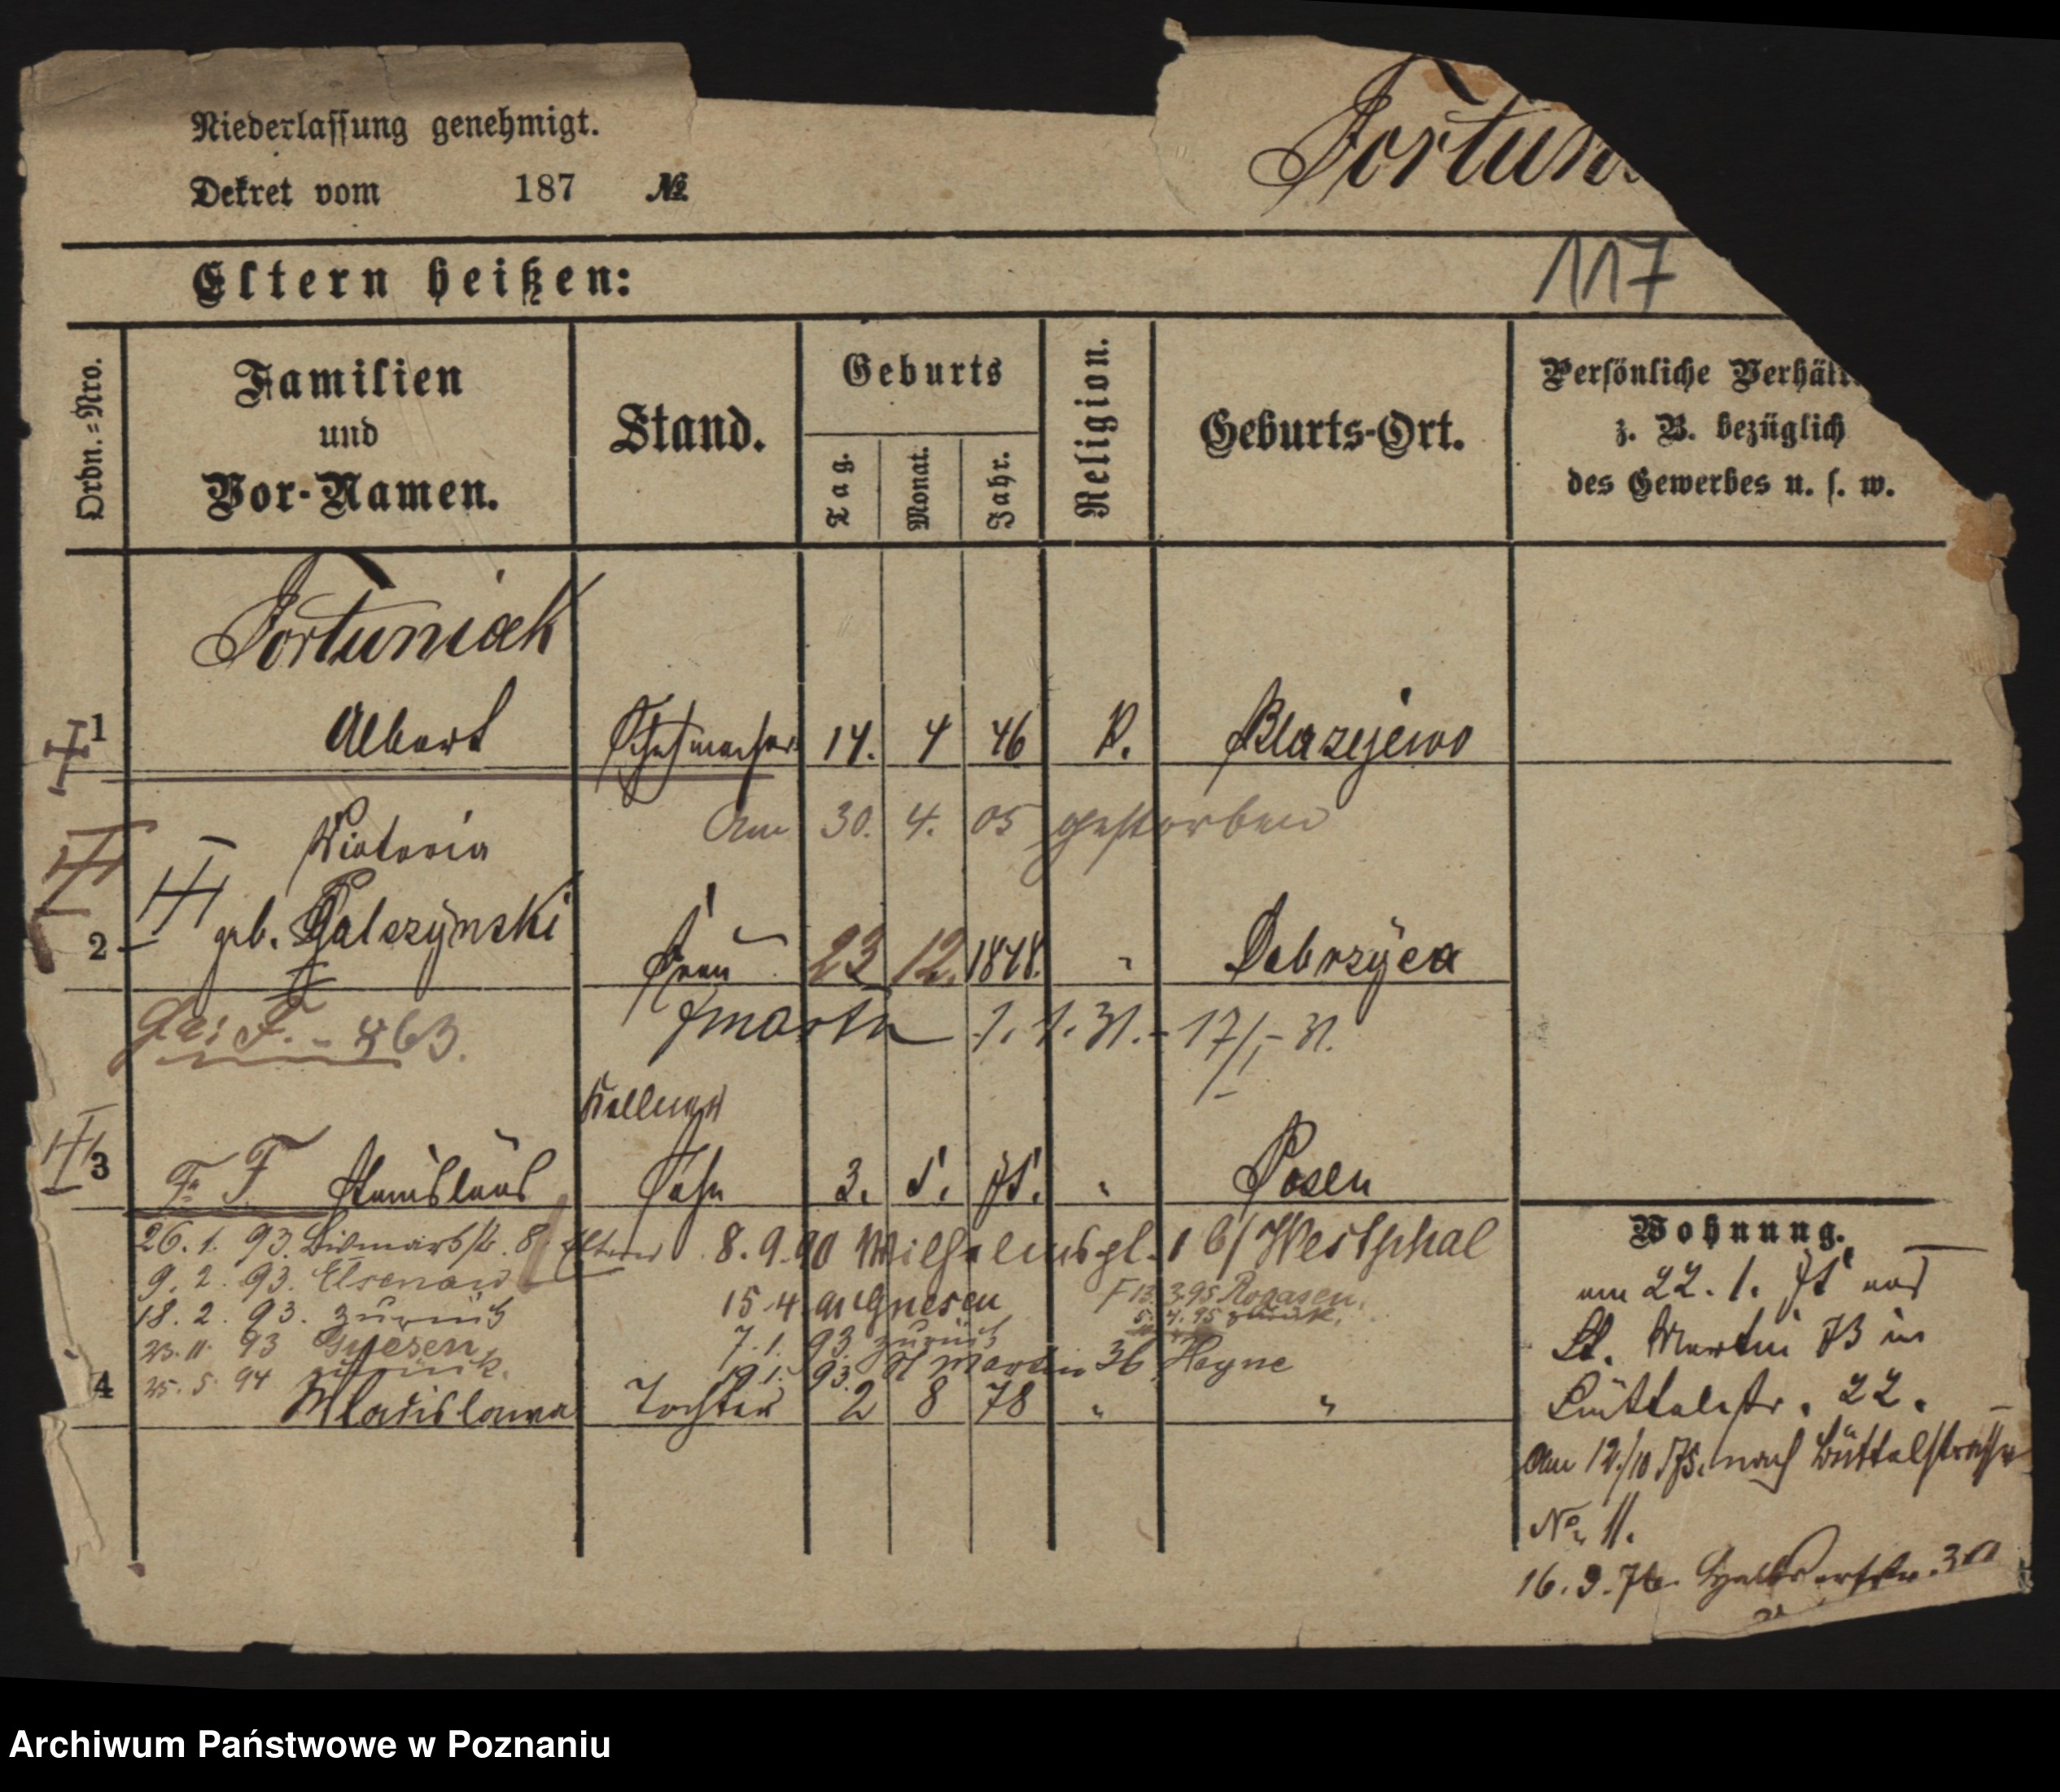 Niederlassung genehmigt.
Dekret vom 187 №
Fortun
Eltern heißen:
117
Ordn.-Nro.
Familien
und
Vor-Namen.
Stand.
Geburts
Tag.
Monat.
Jahr.
Religion.
Geburts-Ort.
Persönliche Verhält
z. B. bezüglich
des Gewerbes u. s. w.
Fortuniak
1 Albert Schuhmacher 14. 4 46 K. Blazejewo
Am 30. 4. 05 gestorben
Victoria
2 geb. Galczynski Frau 23 12. 1848. " Dobrzyca
F. - 463. 1. 1. 31. - 17/1 - 31.
Kellner
3 F. F. Stanislaus Sohn 3. 5. 75. " Posen
26. 1. 93. Bismarckstr. 8 Eltern 8. 9. 90 Wilhelmspl. 16/Westphal
9. 2. 93. Elsenau
15. 4. 91 Gnesen F 13. 3. 95 Rogasen.
18. 2. 93. zurück
5. 4. 95 zurück.
23. 11. 93 Gnesen 7. 1. 93. zurück
25. 5. 94 zurück. 19. 1. 93. St Martin 36 Heyne
4 Wladislawa Tochter 2 8 78 " "
Wohnung.
am 22. 1. 75 aus
St. Martin 73 in
Büttelstr. 22.
Am 12/10 75. nach Büttelstrasse
No 11.
16. 9. 76.
Archiwum Państwowe w Poznaniu